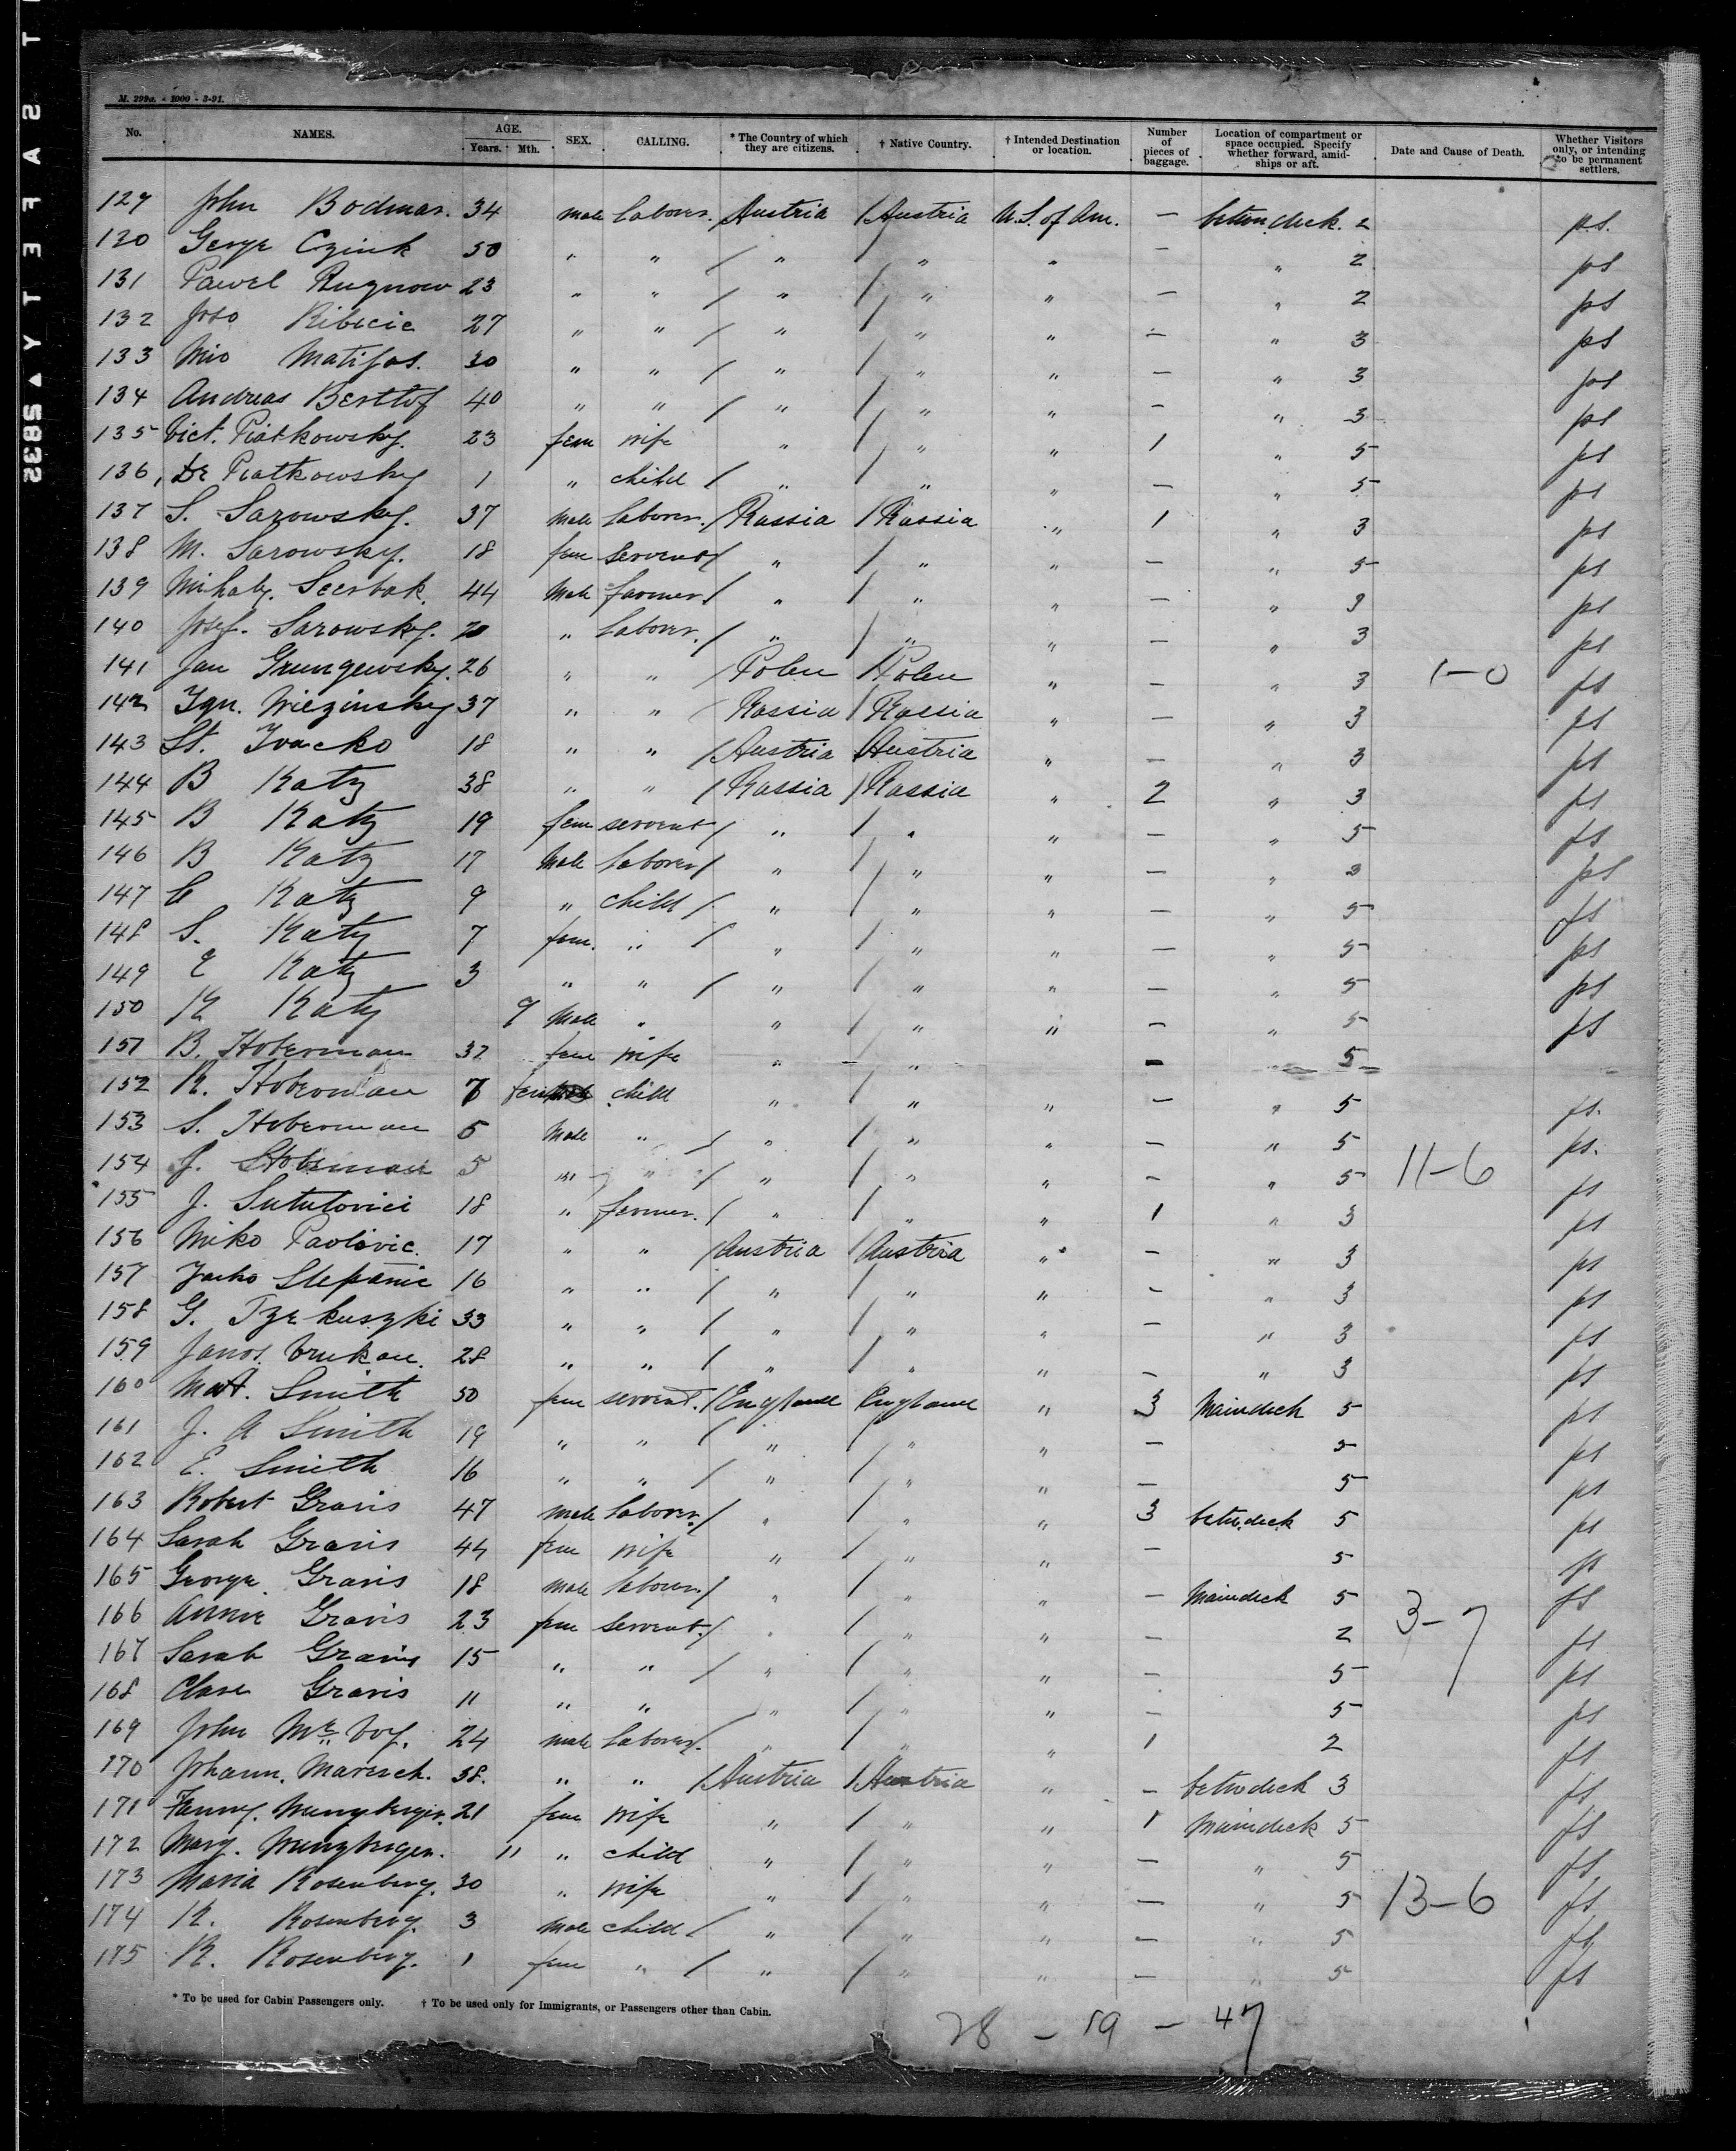 SAFETY ▲ 5832
M. 299a. - 1000 - 3-91.
No. NAMES. AGE. Years. Mth. SEX. CALLING. * The Country of which they are citizens. † Native Country. † Intended Destination or location. Number of pieces of baggage. Location of compartment or space occupied. Specify whether forward, amidships or aft. Date and Cause of Death. Whether Visitors only, or intending to be permanent settlers.
129 John Bodnar. 34 male laborer. Austria / Austria U.S. of Am. — betwn deck. 2 p.s.
130 George Czink 50 " " / " " " — " 2 ps
131 Pawel 23 " " / " / " " — " 2 ps
132 Joso Ribicic 27 " " / " / " " — " 3 ps
133 Mio Matijas. 30 " " / " / " " — " 3 ps
134 Andreas 40 " " / " / " " — " 3 ps
135 Vict. Piatkowsky. 23 fem wife " / " " 1 " 5 ps
136 Piatkowsky 1 " child / " / " " — " 5 ps
137 S. Sarowsky. 37 male laborer. / Russia / Russia " 1 " 3 ps
138 M. Sarowsky. 18 fem servent / " / " " — " 5 ps
139 Mihaly. Scerbak. 44 male farmer. / " / " " — " 3 ps
140 Josef. Sarowsky. 20 " laborer. / " / " " — " 3 ps
141 Jan 26 " " / Polen / Polen " — " 3 1-0 ps
142 Ign. Wiezinsky 37 " " / Russia / Russia " — " 3 ps
143 St. Ivacko 18 " " / Austria Austria " — " 3 ps
144 B Katz 38 " " / Russia / Russia " 2 " 3 ps
145 B Katz 19 fem servent / " / " " — " 5 ps
146 B Katz 17 male laborer / " / " " — " 3 ps
147 C Katz 9 " child / " / " " — " 5 ps
148 S. Katz 7 fem. " / " / " " — " 5 ps
149 E Katz 3 " " / " / " " — " 5 ps
150 K Katz 9 male " " / " " — " 5 ps
151 B. Hoberman 37 fem wife " / " — " 5
152 R. Hoberman 7 fem child " / " " — " 5 ps.
153 S. Hoberman 5 male " / " / " " — " 5 ps.
154 J. Hoberman 5 " " / " / " " — " 5 11-6 ps
155 J. Sututovici 18 " farmer. / " / " " 1 " 3 ps
156 Miko Pavlovic. 17 " " / Austria / Austria " — " 3 ps
157 Janko Stepanic 16 " " / " / " " — " 3 ps
158 G. 33 " " / " / " " — " 3 ps
159 Janos. 28 " " / " / " " — " 3 ps
160 Smith 50 fem servent. / England England " 3 Maindeck 5 ps
161 J. A Smith 19 " " / " / " " — 5 ps
162 E. Smith 16 " " / " / " " — 5 ps
163 Robert Gravis 47 male laborer. / " / " " 3 betw.deck 5 ps
164 Sarah Gravis 44 fem wife " / " " — 5 ps
165 George. Gravis 18 male laborer. / " / " " — Maindeck 5 ps
166 Annie Gravis 23 fem servent. / " / " " — 2 3-7 ps
167 Sarah Gravis 15 " " / " / " " — 5 ps
168 Clare Gravis 11 " " " / " " — 5 ps
169 John 24 male laborer. / " / " " 1 2 ps
170 Johann. Maresch. 38. " " / Austria / Austria " — betwdeck 3 ps
171 Fanny. 21 fem wife " / " " 1 Maindeck 5 ps
172 Mary. 11 " child " / " " — " 5 ps
173 Maria Rosenberg. 30 " wife " / " " — " 5 13-6 ps
174 K. Rosenberg. 3 male child / " / " " — " 5 ps
175 R. Rosenberg. 1 fem " / " / " " — " 5 ps
* To be used for Cabin Passengers only. † To be used only for Immigrants, or Passengers other than Cabin.
28 — 19 — 47